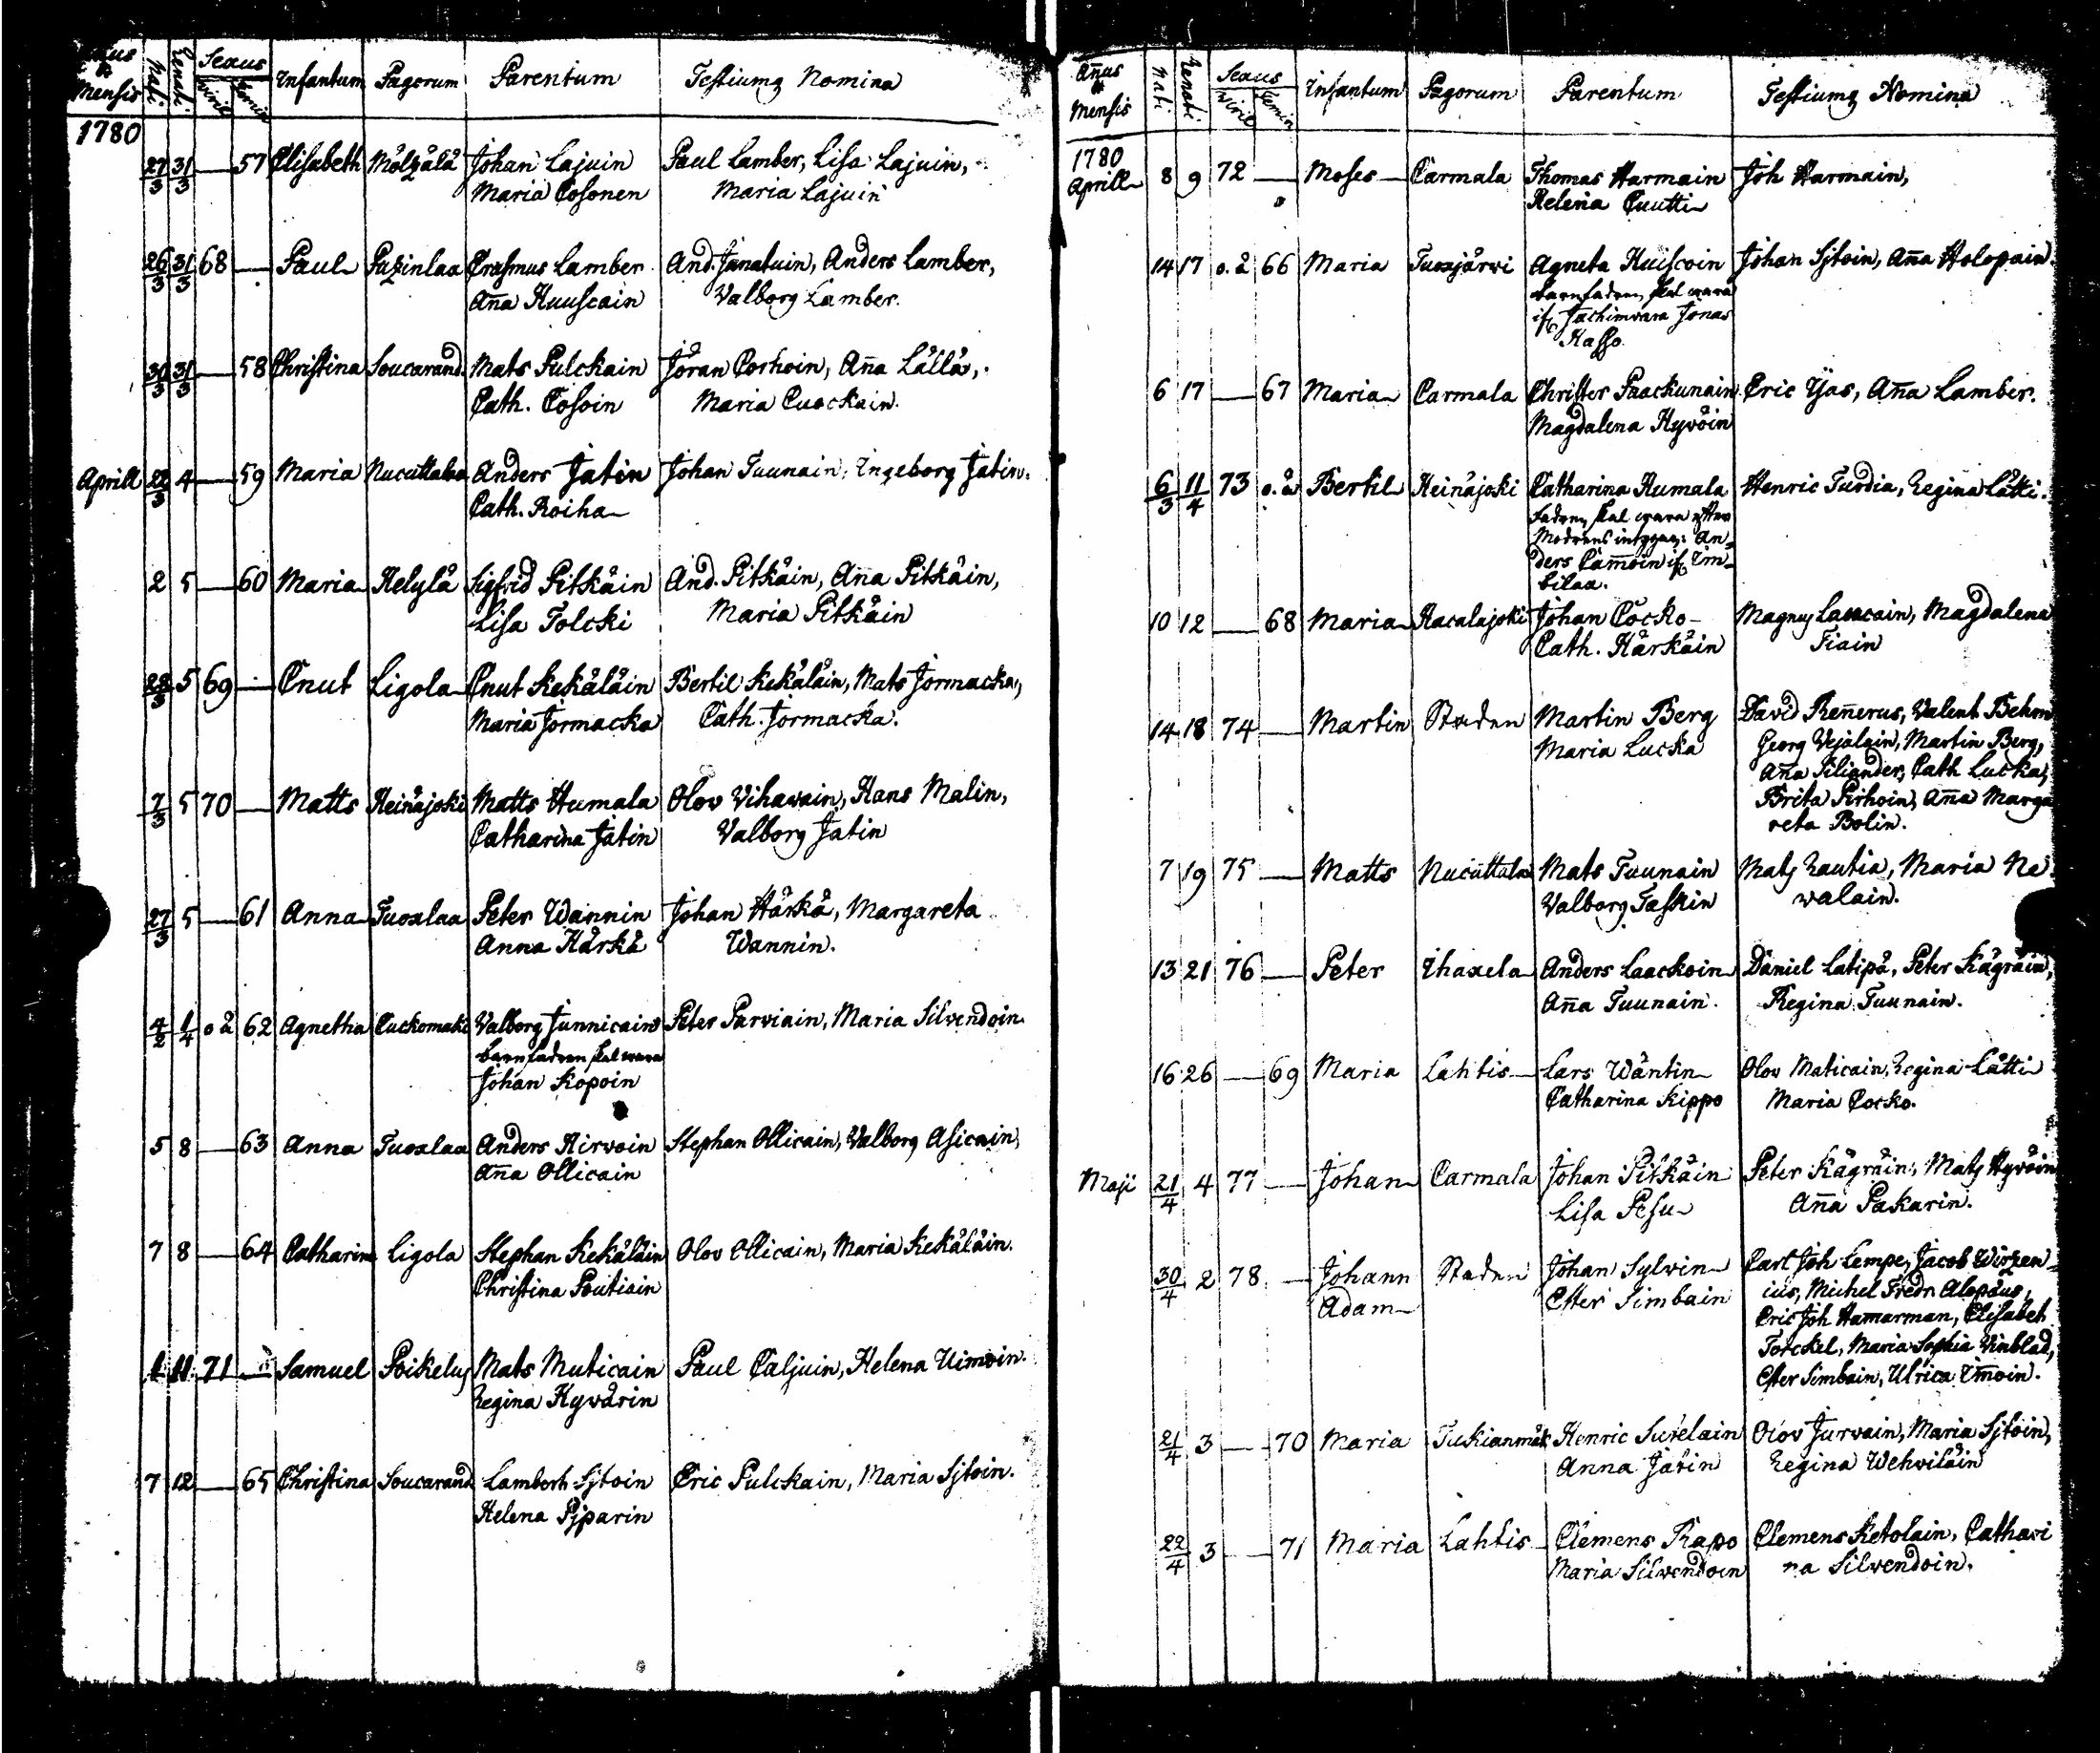 Mensis Nati Renati Sexus Viril Femin Infantum Pagorum Parentum Testiumq Nomina
1780
27/3 31/3 — 57 Elisabeth Mölzälä Johan Lajuin Paul Lamber, Lisa Lajuin,
Maria Cosonen Maria Lajuin
26/3 31/3 68 — Paul Puzinlaa Erasmus Lamber And. Janatuin, Anders Lamber,
Aña Kuuscain Valborg Lamber.
30/3 31/3 — 58 Christina Soucarand Mats Pulckain Jöran Corhoin, Aña Lällä,
Cath. Cosoin Maria Cuockain.
Aprill 22/3 4 — 59 Maria Nucuttalaa Anders Jatin Johan Tuunain, Ingeborg Jatin.
Cath. Roiha
2 5 — 60 Maria Helylä Sigfrid Pitkäin And. Pitkäin, Aña Pitkäin,
Lisa Tolcki Maria Pitkäin
28/3 5 69 — Cnut Ligola Cnut Kekäläin Bertil Kekäläin, Mats Jormacka,
Maria Jormacka Cath. Jormacka.
7/3 5 70 — Matts Heinäjoki Matts Humala Olov Vihavain, Hans Malin,
Catharina Jätin Valborg Jatin
27/3 5 — 61 Anna Tuoxlaa Peter Wannin Johan Härkä, Margareta
Anna Härkä Wannin.
4/2 1/4 o ä 62 Agnetha Cuckomaki Valborg Junnicain Peter Parviain, Maria Silvendoin
barnfadren skal wara
Johan Kopoin
5 8 — 63 Anna Tuoxlaa Anders Hirvoin Stephan Ollicain, Valborg Asicain,
Aña Ollicain
7 8 — 64 Catharina Ligola Stephan Kekäläin Olov Ollicain, Maria Kekäläin.
Christina Poutiain
1 11 71 — Samuel Poikelus Mats Muticain Paul Caljuin, Helena Uimoin.
Regina Hyvärin
7 12 — 65 Christina Soucarand Lamberth Sjtoin Eric Pulckain, Maria Sjtoin.
Helena Pjparin
Añus & Mensis Nati Renati Sexus Viril Femin Infantum Pagorum Parentum Testiumq Nomina
1780
Aprill 8 9 72 — Moses Carmala Thomas Harmain Joh Harmain,
Helena Cuutti
14 17 o. ä 66 Maria Tuoxjärwi Agneta Huiscoin Johan Sjtoin, Aña Holopain.
barnfadren skal wara
if. Jachimvara Jonas
Hasso.
6 17 — 67 Maria Carmala Christer Paackunain Eric Yjas, Aña Lamber.
Magdalena Hyvöin
6/3 11/4 73 o. ä Bertil Heinäjoki Catharina Humala Henric Turdia, Regina Lätti.
fadren skal wara efter
Modrens An-
ders Cam̃oin if. Im-
bilaa.
10 12 — 68 Maria Kacalajoki Johan Cocko Magnus Laucain, Magdalena
Cath. Härkäin Tiain
14 18 74 — Martin Staden Martin Berg David Reñerus, Valent Behm
Maria Lucka Georg Vejalain, Martin Berg,
Aña Siliander, Cath Lucka,
Brita Pirhoin, Aña Marga
reta Bolin.
7 19 75 — Matts Nucuttalaa Mats Tuunain Mats Rautia, Maria Na
Valborg Taskin walain.
13 21 76 — Peter Ihaxela Anders Laackoin Daniel Latipä, Peter Kägräin,
Aña Tuunain. Regina Tuunain.
16 26 — 69 Maria Lahtis Lars Wäntin Olov Maticain, Regina Lätti
Catharina Kippo Maria Cocko.
Maji 21/4 4 77 — Johan Carmala Johan Pitkäin Peter Kägräin, Mats Hyvöin
Lisa Pesu Aña Pakarin.
30/4 2 78 — Johann Staden Johan Sylvin Carl Joh Lempe, Jacob Wirzen
Adam Ester Simbain ius, Michel Fredr Alopäus,
Eric Joh Hamarman, Elisabeth
Torckel, Maria Sophia Vinblad,
Ester Simbain, Ulrica Im̃oin.
21/4 3 — 70 Maria Tukianmäk Henric Surelain Olov Jurvain, Maria Sjtoin,
Anna Jätin Regina Wehviläin
22/4 3 — 71 Maria Lahtis Clemens Rapo Clemens Ketolain, Cathari
Maria Silvendoin na Silvendoin.